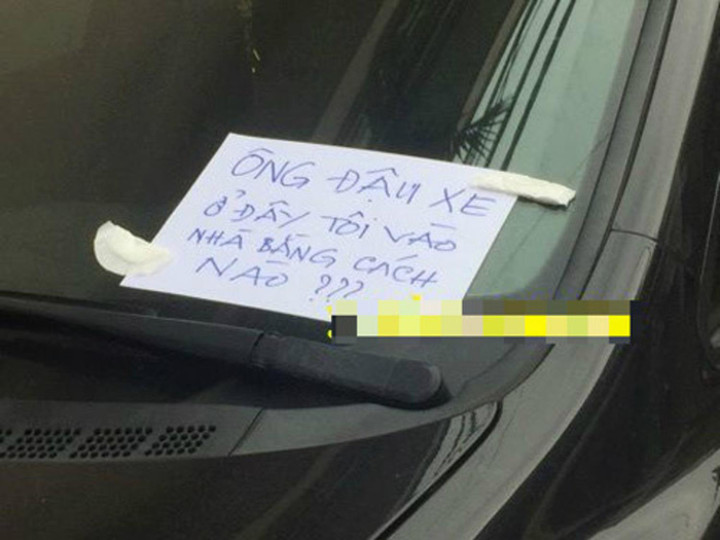 ÔNG ĐẬU XE
Ở ĐÂY TÔI VÀO
NHÀ BẰNG CÁCH
NÀO ???